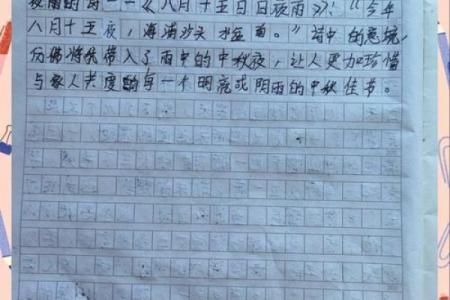 夜雨的诗一一《八月十五日日夜雨》："今年
八月十五夜，海浦沙头水筮自。"诗中的意境，
仿佛将我带入了雨中的中秋夜，让人更加珍惜
与家人共度的每一个明亮或阴雨的中秋佳节。